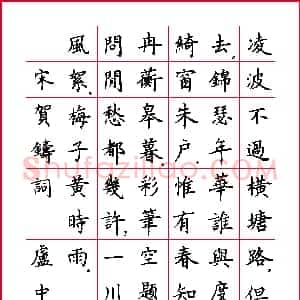 凌波不過橫塘路,但
去,錦瑟年華誰與度
綺窗朱户惟有春知
冉蘅皋暮,彩筆空題
問閒愁都幾許,一川
風絮,梅子黃時雨。
宋賀鑄詞 盧中
Shufaziliao.COM